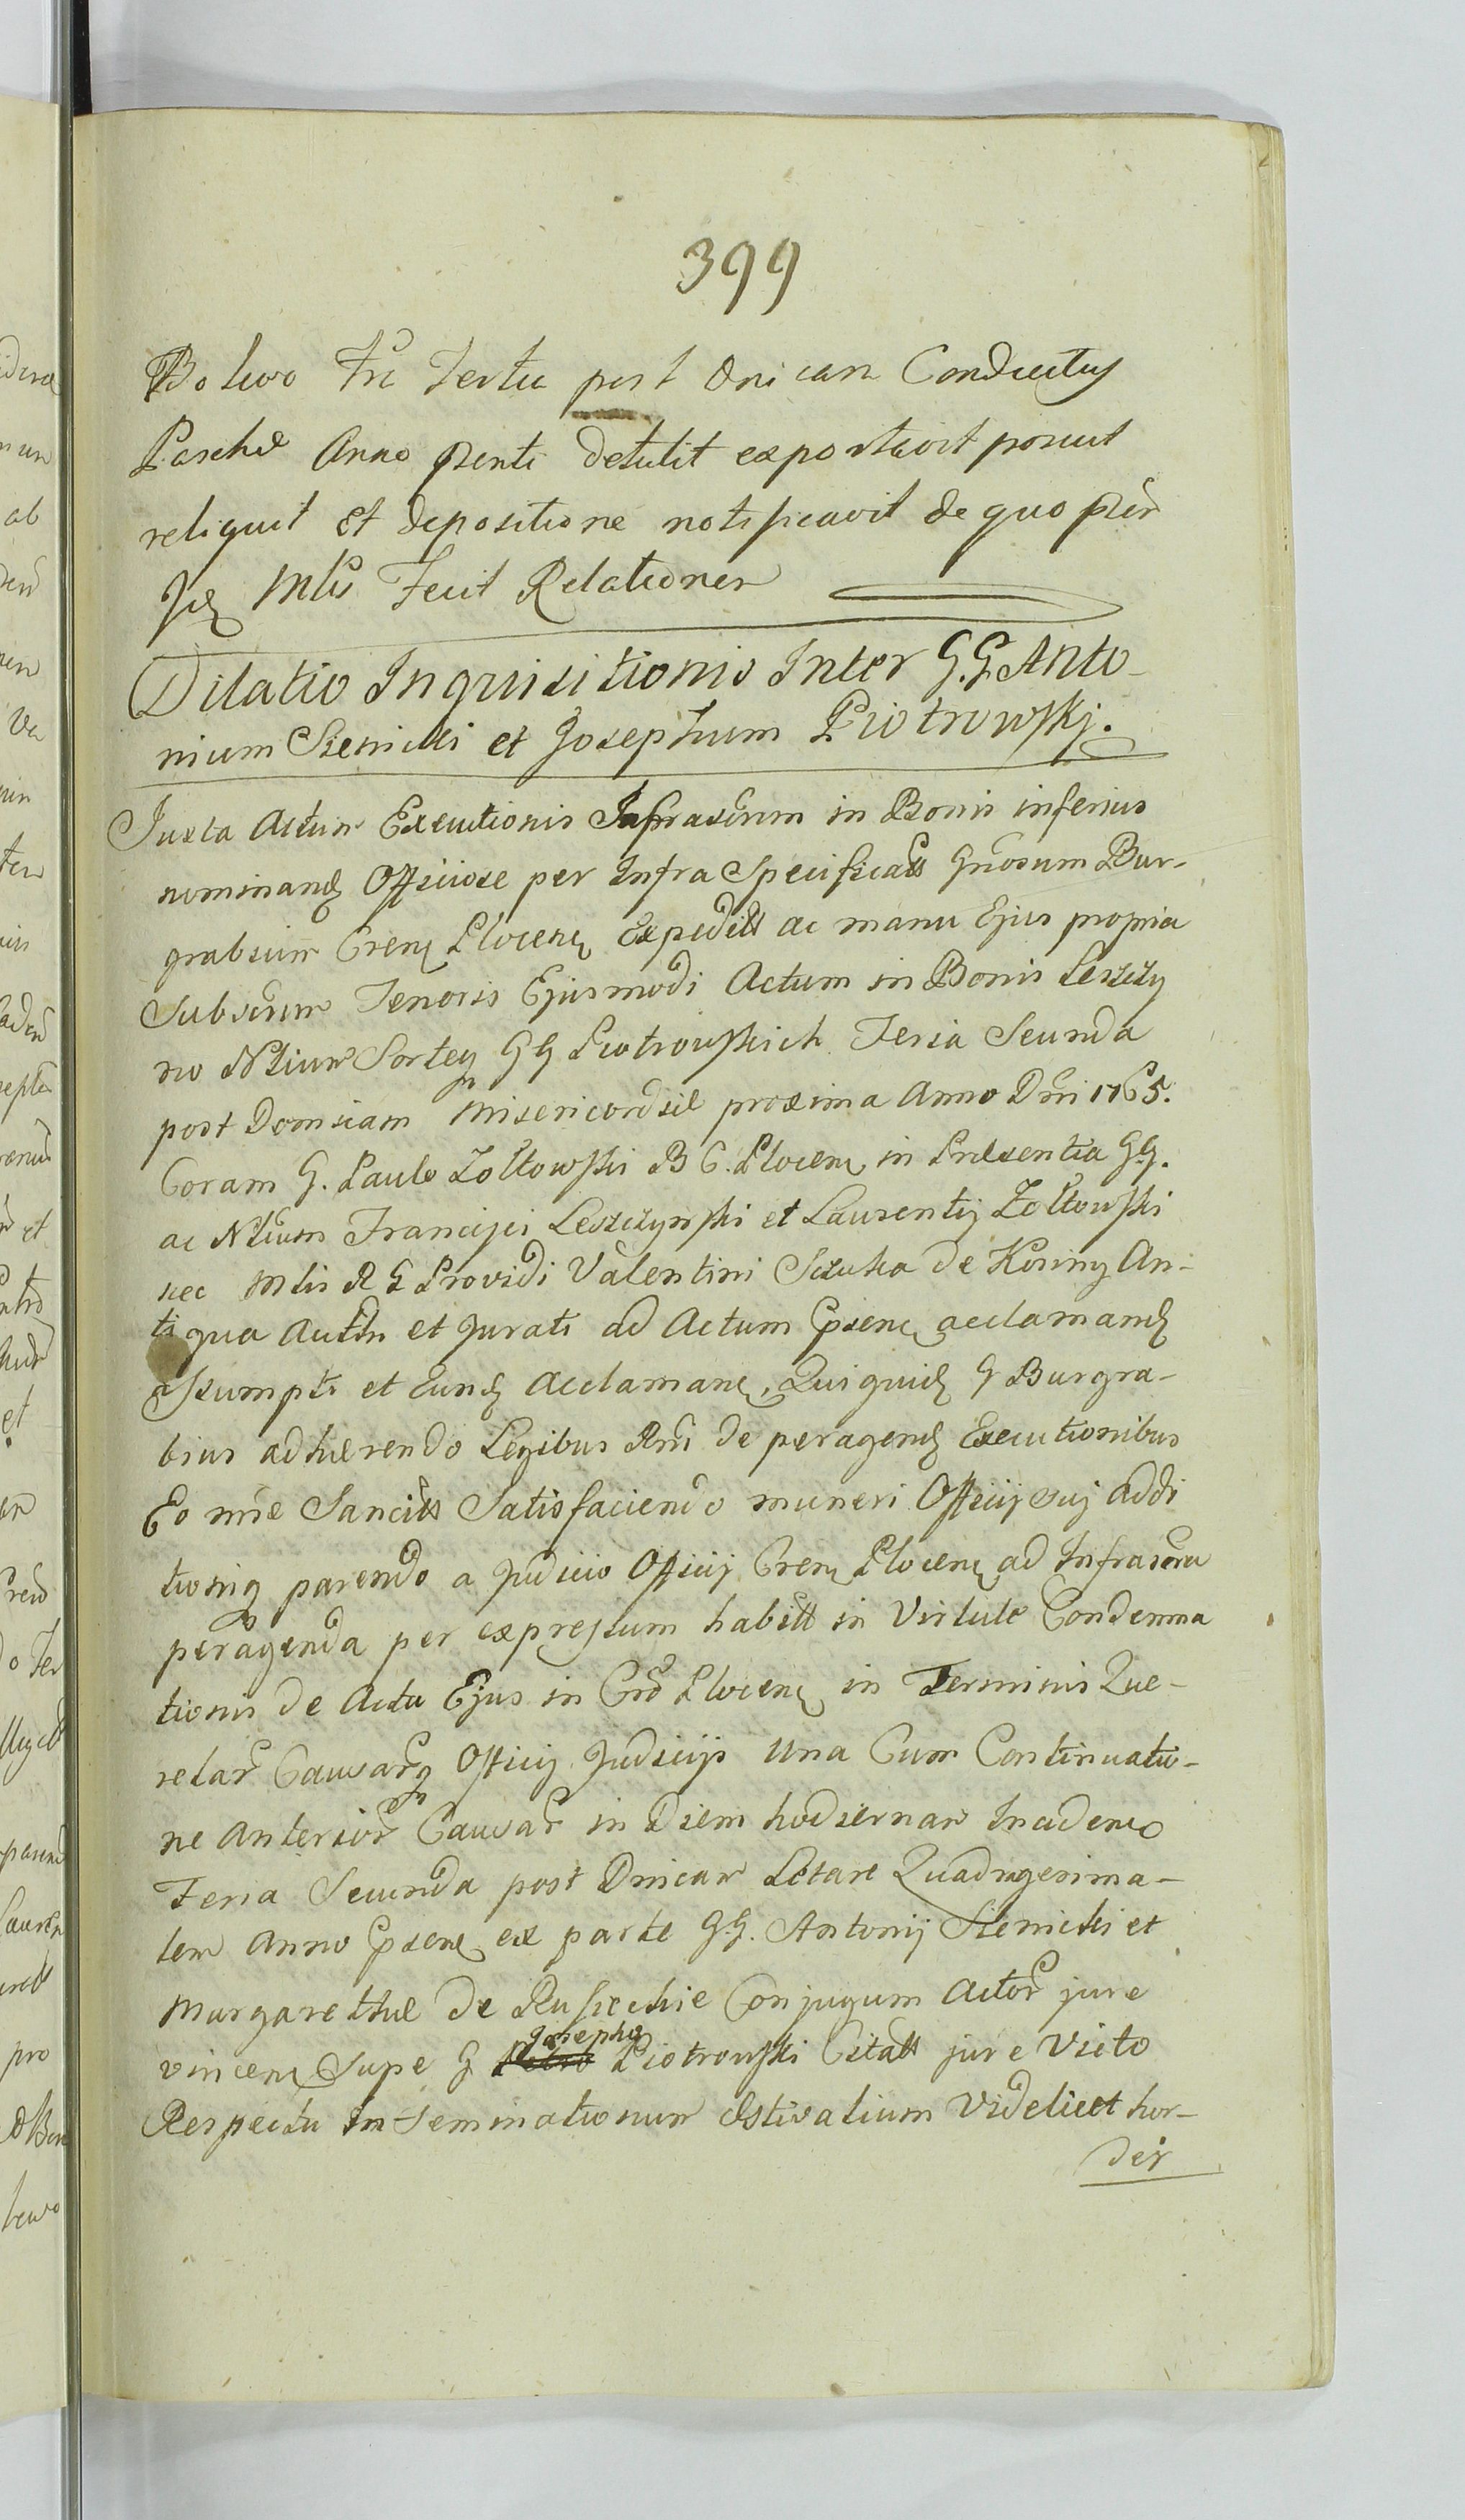 399
Bolewo Fri Tertia post Dnicam Conductus
Paschæ Anno psenti detulit exportavit posuit
reliquit et depositione notificavit de quo pser
Mlis Fecit Relationem
Dilatio Inquisitionis Inter G.G. Anto-
nium Sienicki et Josephum Piotrowskj.
Juxta Actum Executionis Infrascrum in Bonis inferius
nominand Officiose per Infra Specificatt Gnosum Bur-
grabium Cren Plocen Expeditt ac manu Ejus propria
Subscrum Tenoris Ejusmodi Actum in Bonis Leszczy
no Ntium Sortey GG Piotrowskich Feria Secunda
post Domicam Misericordiæ proxima Anno Dni 1765.
Coram G. Paulo Zołtowski B C. Plocen in Præsentia G.G.
ac Ntium Francisci Leszczynski et Laurentij Zołtowski
nec Mlis R G Providi Valentini Sztuka de Koziny An-
tiqua Autthi et Jurati ad Actum Psenc acclamand
assumpti et Eund Acclamanc, Qui quid G Burgra-
bius adhærendo Legibus Rni de peragend Executionibus
Eo nñe Sancitt Satisfaciendo muneri Officij suj addi
tioniq parendo a Judicio Officij Cren Plocen ad Infrascra
peragenda per expressum habitt in Virtute Condemna
tionis de Actu Ejus in Cro Plocen in Terminis Que-
relar Causarq Officij Judicijs Una Cum Continuatio-
ne Anterior Causar in Diem hodiernam Incidenc
Feria Secunda post Dnicam Lætare Quadragesima-
lem Anno Psenc ex parte G.G. Antonij Sienicki et
Margarethæ de Conjugum Actor jure
vincenc Supe G Josepho Piotrowski Citatt jure Victo
Respectu Inseminationum Æstivalium Videlicet hor-
dei